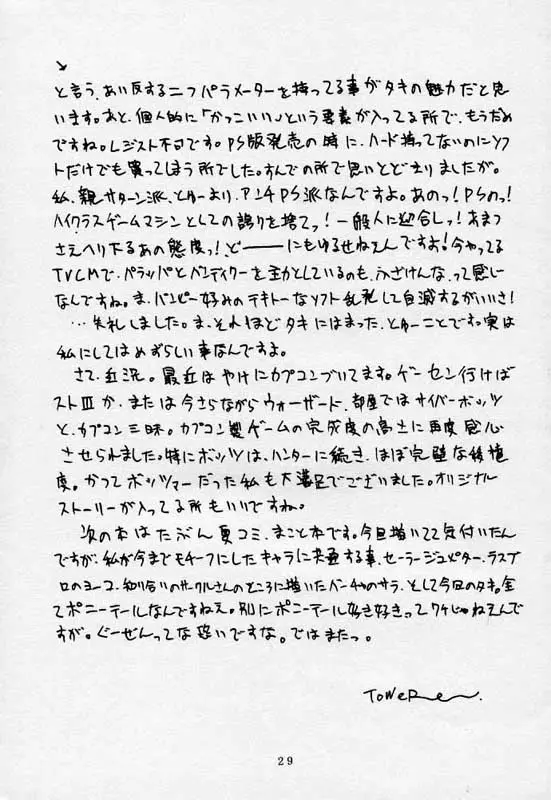 と言う、あい反する二つパラメーターを持ってる事がタキの魅力だと思
います。あと、個人的に「かっこいい」という要素が入ってる所で、もうだめ
ですね。レジスト不可です。PS版発売の時に、ハード持ってないのにソフ
トだけでも買ってしまう所でした。すんでの所で思いとどまりましたが。
私、親サターン派、とゆーより、アンチPS派なんですよ。あのっ!PSのっ!
ハイクラスゲームマシンとしての誇りを捨てっ!一般人に迎合しっ!あまつ
さえへり下るあの態度っ!どーーーにもゆるせねえんですよ!今やってる
TVCMで、パラッパとバンディクーを主力としているのも、ふざけんな、って感じ
なんですね。ま、パンピー好みのテキトーなソフト乱発して自滅するがいいさ!
…失礼しました。ま、それほどタキにはまった、とゆーことです。実は
私にしてはめずらしい事なんですよ。
さて、近況。最近はやけにカプコンづいてます。ゲーセン行けば
ストIIIか、または今さらながらウォーザード、部屋ではサイバーボッツ
と、カプコン三昧。カプコン製ゲームの完成度の高さに再度感心
させられました。特にボッツは、ハンターに続き、ほぼ完璧な移植
度。かつてボッツマーだった私も大満足でございました。オリジナル
ストーリーが入ってる所もいいですね。
次の本はたぶん夏コミ、まこと本です。今回描いてて気付いたん
ですが、私が今までモチーフにしたキャラに共通する事、セーラージュピター、ラスブ
ロのヨーコ、知り合いのサークルさんのところに描いたバーチャのサラ、そして今回のタキ。全
てポニーテールなんですねえ。別にポニーテール好き好きってワケじゃねえんで
すが。ぐーぜんってな恐いですな。ではまたっ。
29